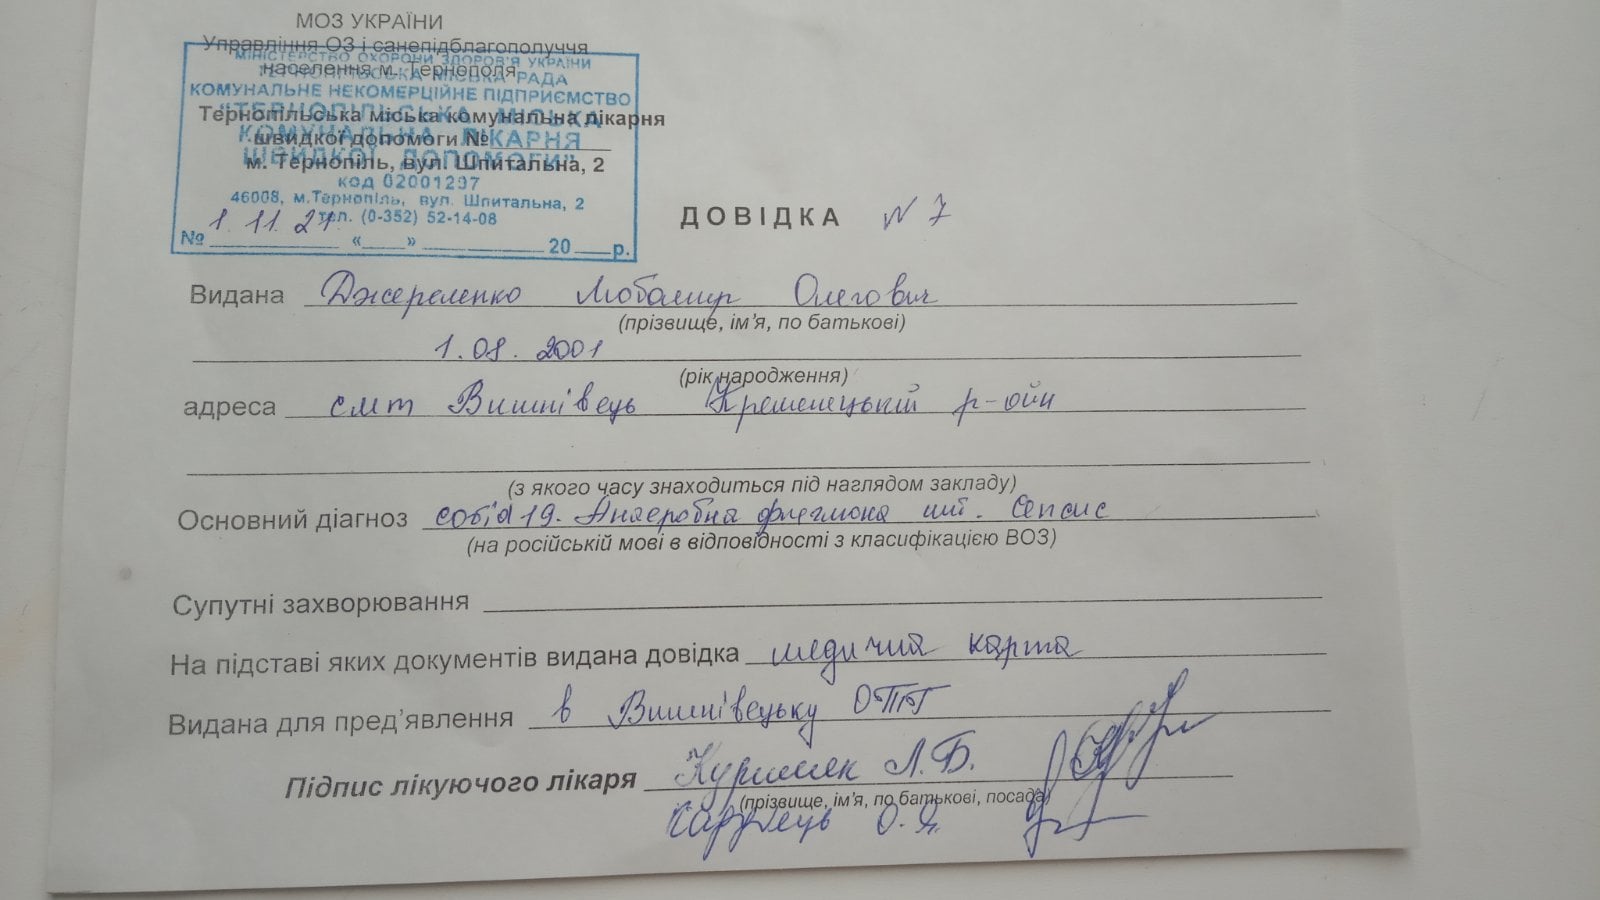 МОЗ УКРАЇНИ
Управління ОЗ і санепідблагополуччя
населення м. Тернополя
МІНІСТЕРСТВО ОХОРОНИ ЗДОРОВ'Я УКРАЇНИ
ТЕРНОПІЛЬСЬКА МІСЬКА РАДА
КОМУНАЛЬНЕ НЕКОМЕРЦІЙНЕ ПІДПРИЄМСТВО
"ТЕРНОПІЛЬСЬКА МІСЬКА
КОМУНАЛЬНА ЛІКАРНЯ
ШВИДКОЇ ДОПОМОГИ"
Тернопільська міська комунальна лікарня
швидкої допомоги №
м. Тернопіль, вул. Шпитальна, 2
код 02001297
46008, м.Тернопіль, вул. Шпитальна, 2
тел. (0-352) 52-14-08
1. 11. 21.
№ « » 20 р.
ДОВІДКА N 7
Видана Джереленко Любомир Олегович
(прізвище, ім'я, по батькові)
1.08.2001
(рік народження)
адреса смт Вишнівець Кременецький р-ойн
(з якого часу знаходиться під наглядом закладу)
Основний діагноз covid 19. Анаеробна флегмона шиї. Сепсис
(на російській мові в відповідності з класифікацією ВОЗ)
Супутні захворювання
На підставі яких документів видана довідка медична карта
Видана для пред'явлення в Вишнівецьку ОТГ
Підпис лікуючого лікаря Л.Б.
(прізвище, ім'я, по батькові, посада)
О.Я.